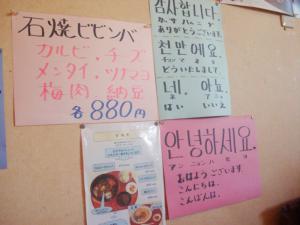 石焼ビビンバ
カルビ・チーズ
メンタイ・ツナマヨ
梅肉 納豆
各880円
감사합니다.
カㇺサハㇺニダ
ありがとうございます。
천만에요.
チョンマネヨ
どういたしまして。
네. 아뇨.
ネ アニョ
はい いいえ
안녕하세요.
アンニョンハセヨ
おはようございます。
こんにちは。
こんばんは。